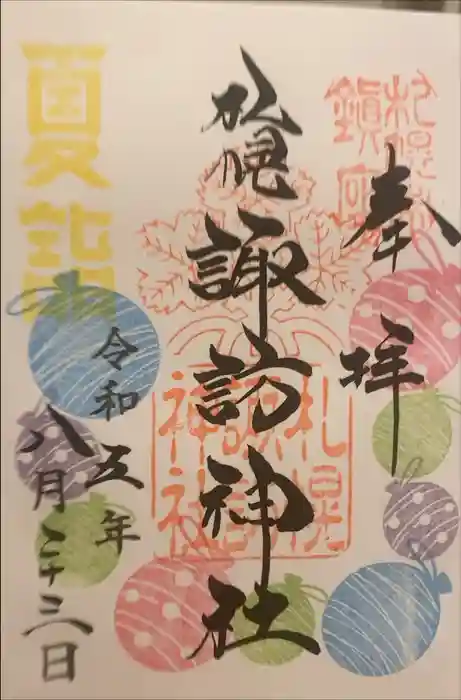 奉拝
札幌
鎮座
札幌諏訪神社
札幌
諏訪
神社
夏詣
令和五年
八月二十三日